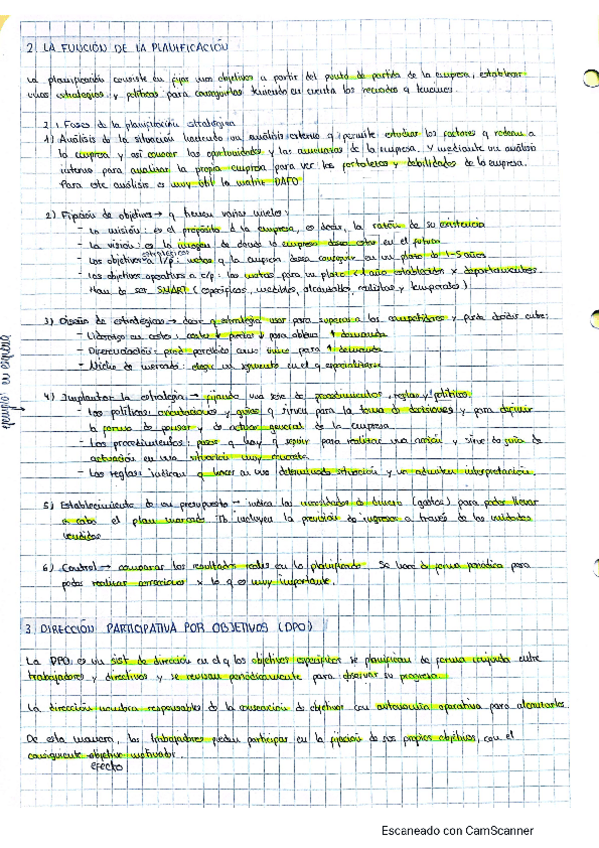 2. LA FUNCIÓN DE LA PLANIFICACIÓN
La planificación consiste en fijar unos objetivos a partir del punto de partida de la empresa, establecer
unas estrategias y políticas para conseguirlos teniendo en cuenta los recursos q tenemos.
2.1. Fases de la planificación estratégica
1) Análisis de la situación haciendo un análisis externo q permite estudiar los factores q rodean a
la empresa y así conocer las oportunidades y las amenazas de la empresa. Y mediante un análisis
interno para analizar la propia empresa para ver las fortalezas y debilidades de la empresa.
Para este análisis es muy útil la matriz DAFO
2) Fijación de objetivos → q tienen varios niveles:
- La misión: es el propósito d la empresa, es decir, la razón de su existencia
- La visión: es la imagen de donde la empresa desea estar en el futuro
- Los objetivos estratégicos a l/p: metas q la empresa desea conseguir en un plazo d 1-5 años
- Los objetivos operativos a c/p: las metas para un plazo d 1 año establecidos x departamentos.
Han de ser SMART (específicos, medibles, alcanzables, realistas y temporales)
3) Diseño de estrategias → decir q estrategia usar para superar a los competidores y puede decidir entre:
- Liderazgo en costes: costes ↓ precios ↓ para obtener ↑ demanda
- Diferenciación: prod. percibido como único para ↑ demanda
- Nicho de mercado: elegir un segmento en el q especializarse
ejemplos en esquema →
4) Implantar la estrategia → fijando una serie de procedimientos, reglas y políticas
- Las políticas: orientaciones y guías q sirven para la toma d decisiones y para definir
la forma de pensar y de actuar general de la empresa
- Los procedimientos: pasos q hay q seguir para realizar una acción y sirve de guía de
actuación en una situación muy concreta.
- Las reglas: indican q hacer en una determinada situación y no admiten interpretación.
5) Establecimiento de un presupuesto → indica las necesidades de dinero (gastos) para poder llevar
a cabo el plan marcado. Tb incluyen la previsión de ingresos a través de las unidades
vendidas
6) Control → comparar los resultados reales con lo planificado. Se hace d forma periódica para
poder realizar correcciones x lo q es muy importante.
3. DIRECCIÓN PARTICIPATIVA POR OBJETIVOS (DPO)
La DPO es un sist. de dirección en el q los objetivos específicos se planifican de forma conjunta entre
trabajadores y directivos y se revisan periódicamente para observar su progreso.
La dirección nombra responsables de la consecución de objetivos con autonomía operativa para alcanzarlos.
De esta manera, los trabajadores pueden participar en la fijación de sus propios objetivos, con el
consiguiente objetivo motivador.
efecto
Escaneado con CamScanner